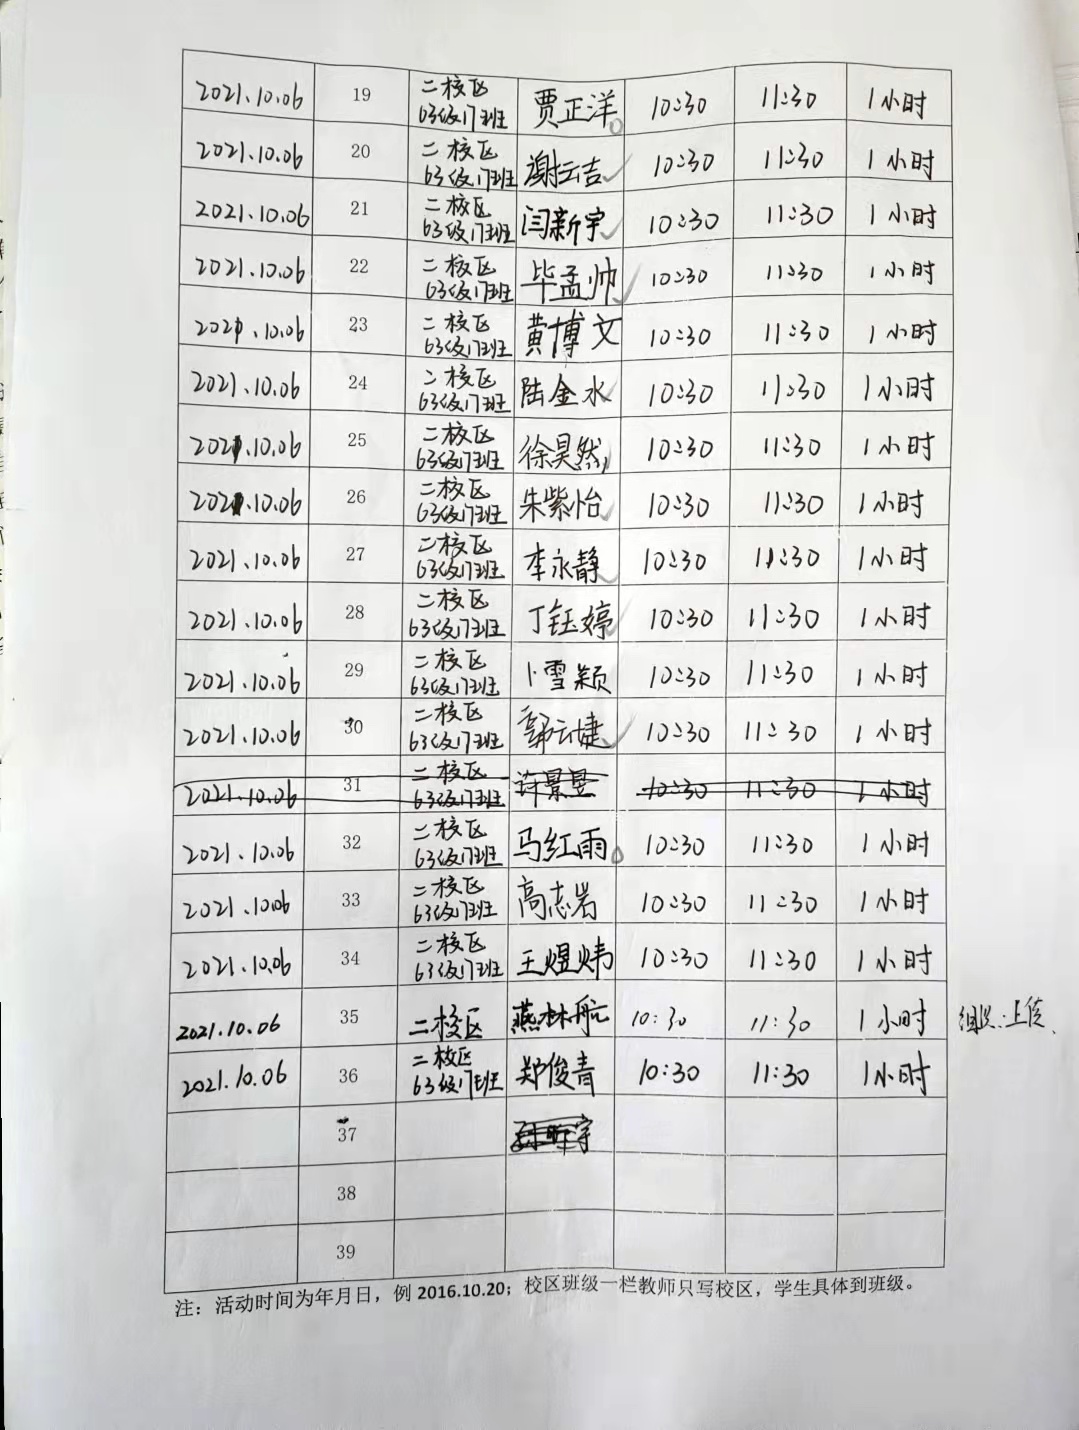 2021.10.06 19 二校区 63级17班 贾正洋 10:30 11:30 1小时
2021.10.06 20 二校区 63级17班 谢云吉 10:30 11:30 1小时
2021.10.06 21 二校区 63级17班 闫新宇 10:30 11:30 1小时
2021.10.06 22 二校区 63级17班 毕孟帅 10:30 11:30 1小时
2021.10.06 23 二校区 63级17班 黄博文 10:30 11:30 1小时
2021.10.06 24 二校区 63级17班 陆金水 10:30 11:30 1小时
2021.10.06 25 二校区 63级17班 徐昊然 10:30 11:30 1小时
2021.10.06 26 二校区 63级17班 朱紫怡 10:30 11:30 1小时
2021.10.06 27 二校区 63级17班 李永静 10:30 11:30 1小时
2021.10.06 28 二校区 63级17班 丁钰婷 10:30 11:30 1小时
2021.10.06 29 二校区 63级17班 卜雪颖 10:30 11:30 1小时
2021.10.06 30 二校区 63级17班 郭云婕 10:30 11:30 1小时
2021.10.06 31 二校区 63级17班 许景昱 10:30 11:30 1小时
2021.10.06 32 二校区 63级17班 马红雨 10:30 11:30 1小时
2021.10.06 33 二校区 63级17班 高志岩 10:30 11:30 1小时
2021.10.06 34 二校区 63级17班 王煜炜 10:30 11:30 1小时
2021.10.06 35 二校区 燕林航 10:30 11:30 1小时 上传
2021.10.06 36 二校区 63级17班 郑俊青 10:30 11:30 1小时
37
38
39
注：活动时间为年月日，例 2016.10.20；校区班级一栏教师只写校区，学生具体到班级。